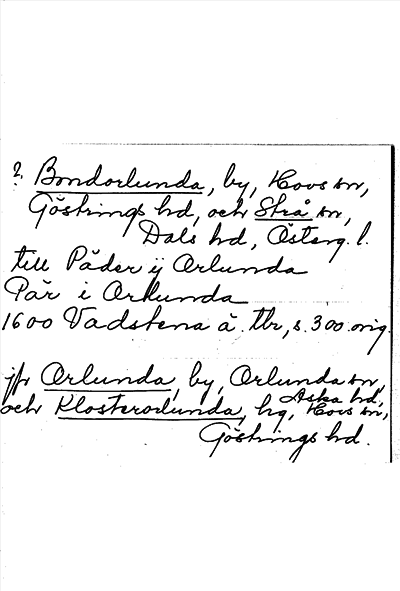 ? Bondorlunda, by, Hovs sn,
Göstrings hd, och Strå sn,
Dals hd, Österg. l.
till Päder ij Orlunda
Pär i Orlunda
1600 Vadstena ä. tbr, s. 300 orig.
jfr Orlunda, by, Orlunda sn,
Aska hd,
och Klosterorlunda, hg, Hovs sn,
Göstrings hd.